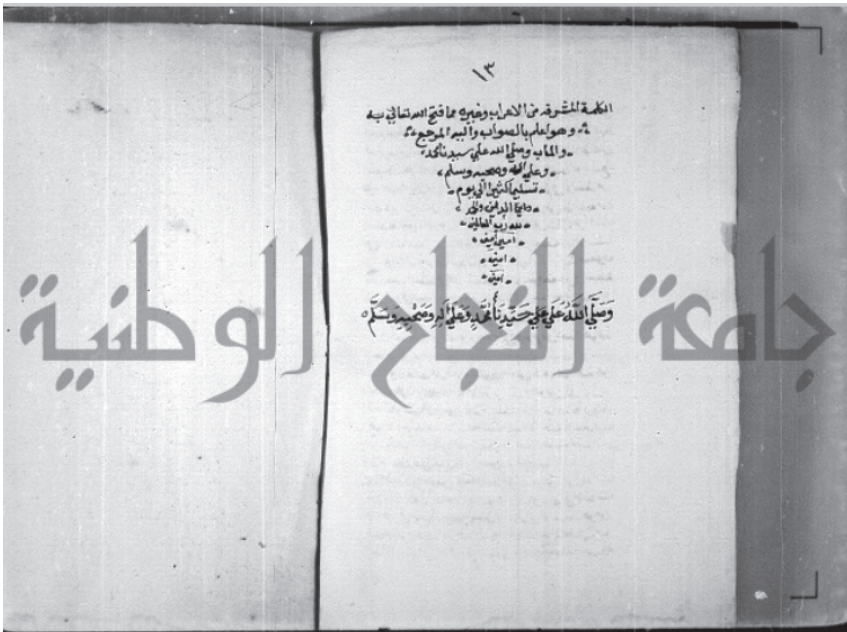 ١٣
الكلمة المشرفة من الاعراب وغيره مما فتح الله تعالي به
وهو اعلم بالصواب واليه المرجع
والماب وصلي الله علي سيدنا محمد
وعلي اله وصحبه وسلم
تسليما كثيرا الي يوم
الدين والحمد
لله رب العالمين
امين امين
امين
امين
وَصَلَّي اللَّهُ عَلَي سَيِّدِنَا مُحَمَّدٍ وَعَلَي اَلِهِ وَصَحْبِهِ وَسَلَّم
جامعة النجاح الوطنية